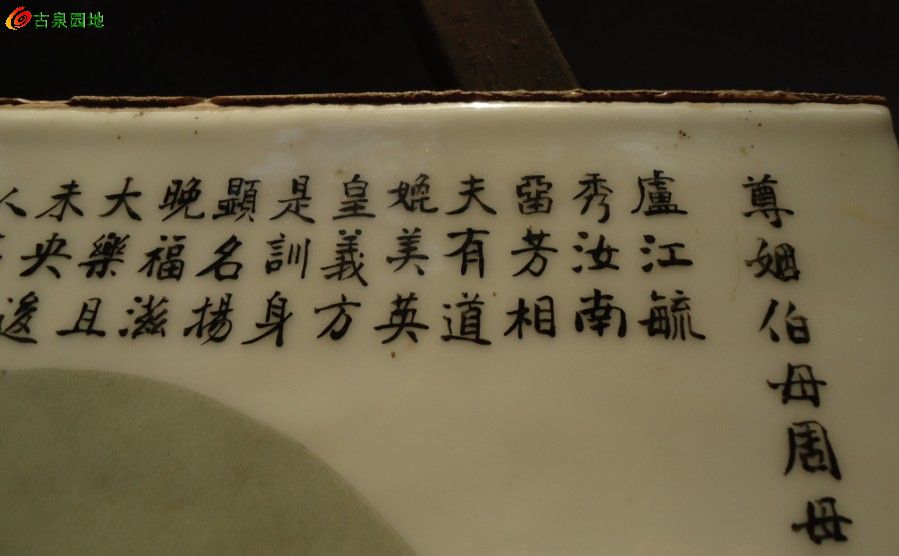 古泉园地
尊姻伯母周母
盧江毓
秀汝南
畱芳相
夫有道
娩美英
皇義方
是訓身
顯名揚
晚福滋
大樂且
未央